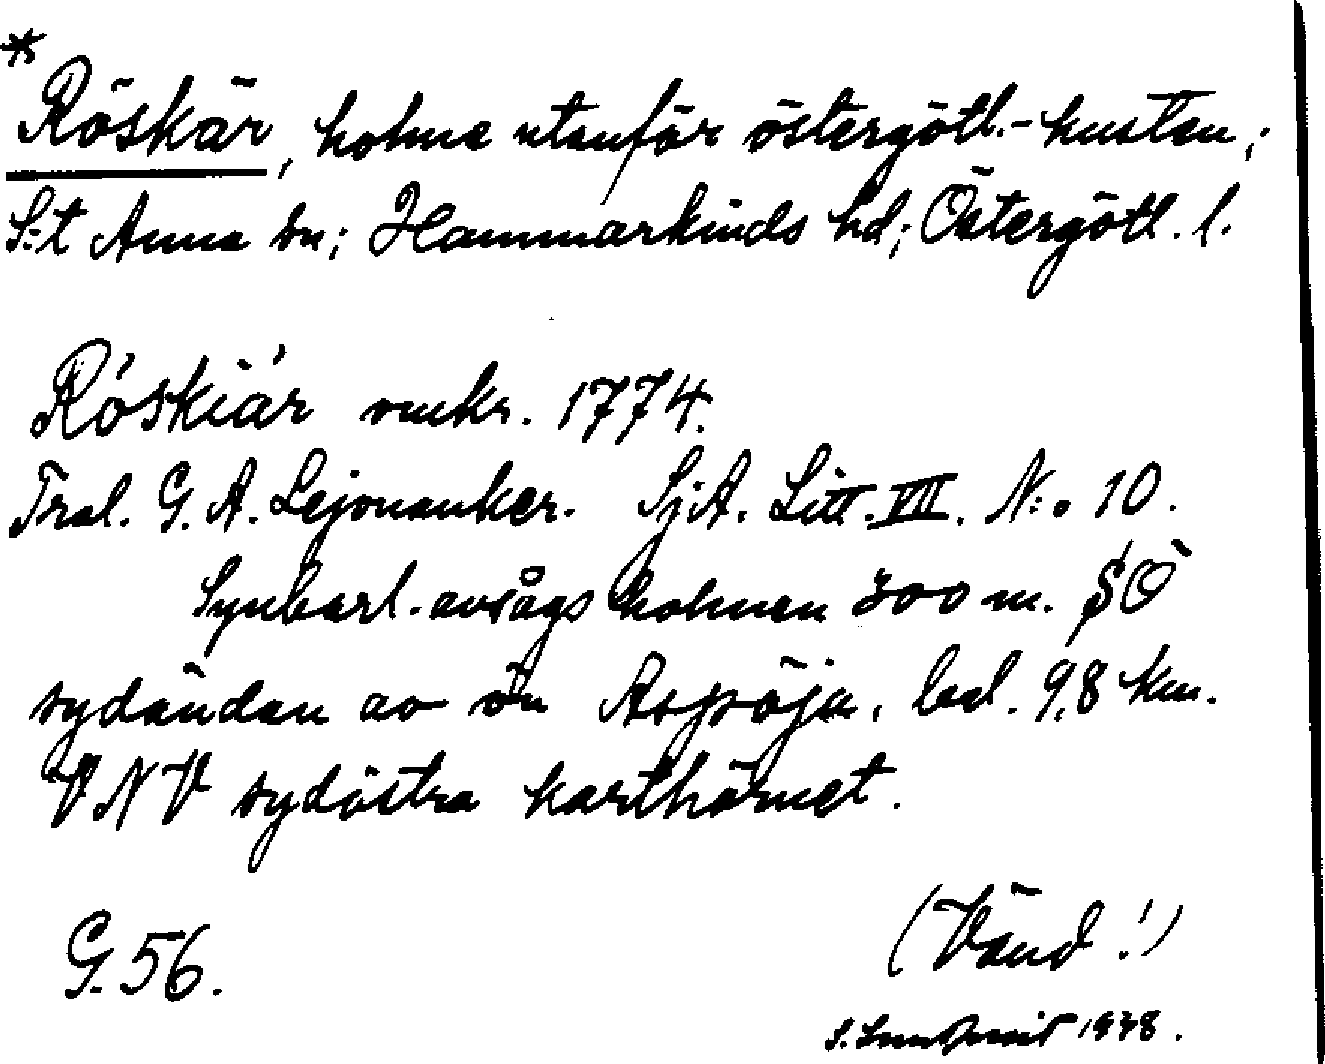 *
Röskär, holme utanför östergötl.-kusten;
S:t Anna sn; Hammarkinds hd; Östergötl. l.
Röskiär smkr. 1774.
Tral. G. A. Lejonanker. SjA. Litt. VII. N:o 10.
Synbarl. avsågs holmen 300 m. SÖ
sydändan av ön Aspöja, bel. 9,8 km.
VNV sydöstra karthörnet.
G. 56.
(Vänd!)
S. 1938.